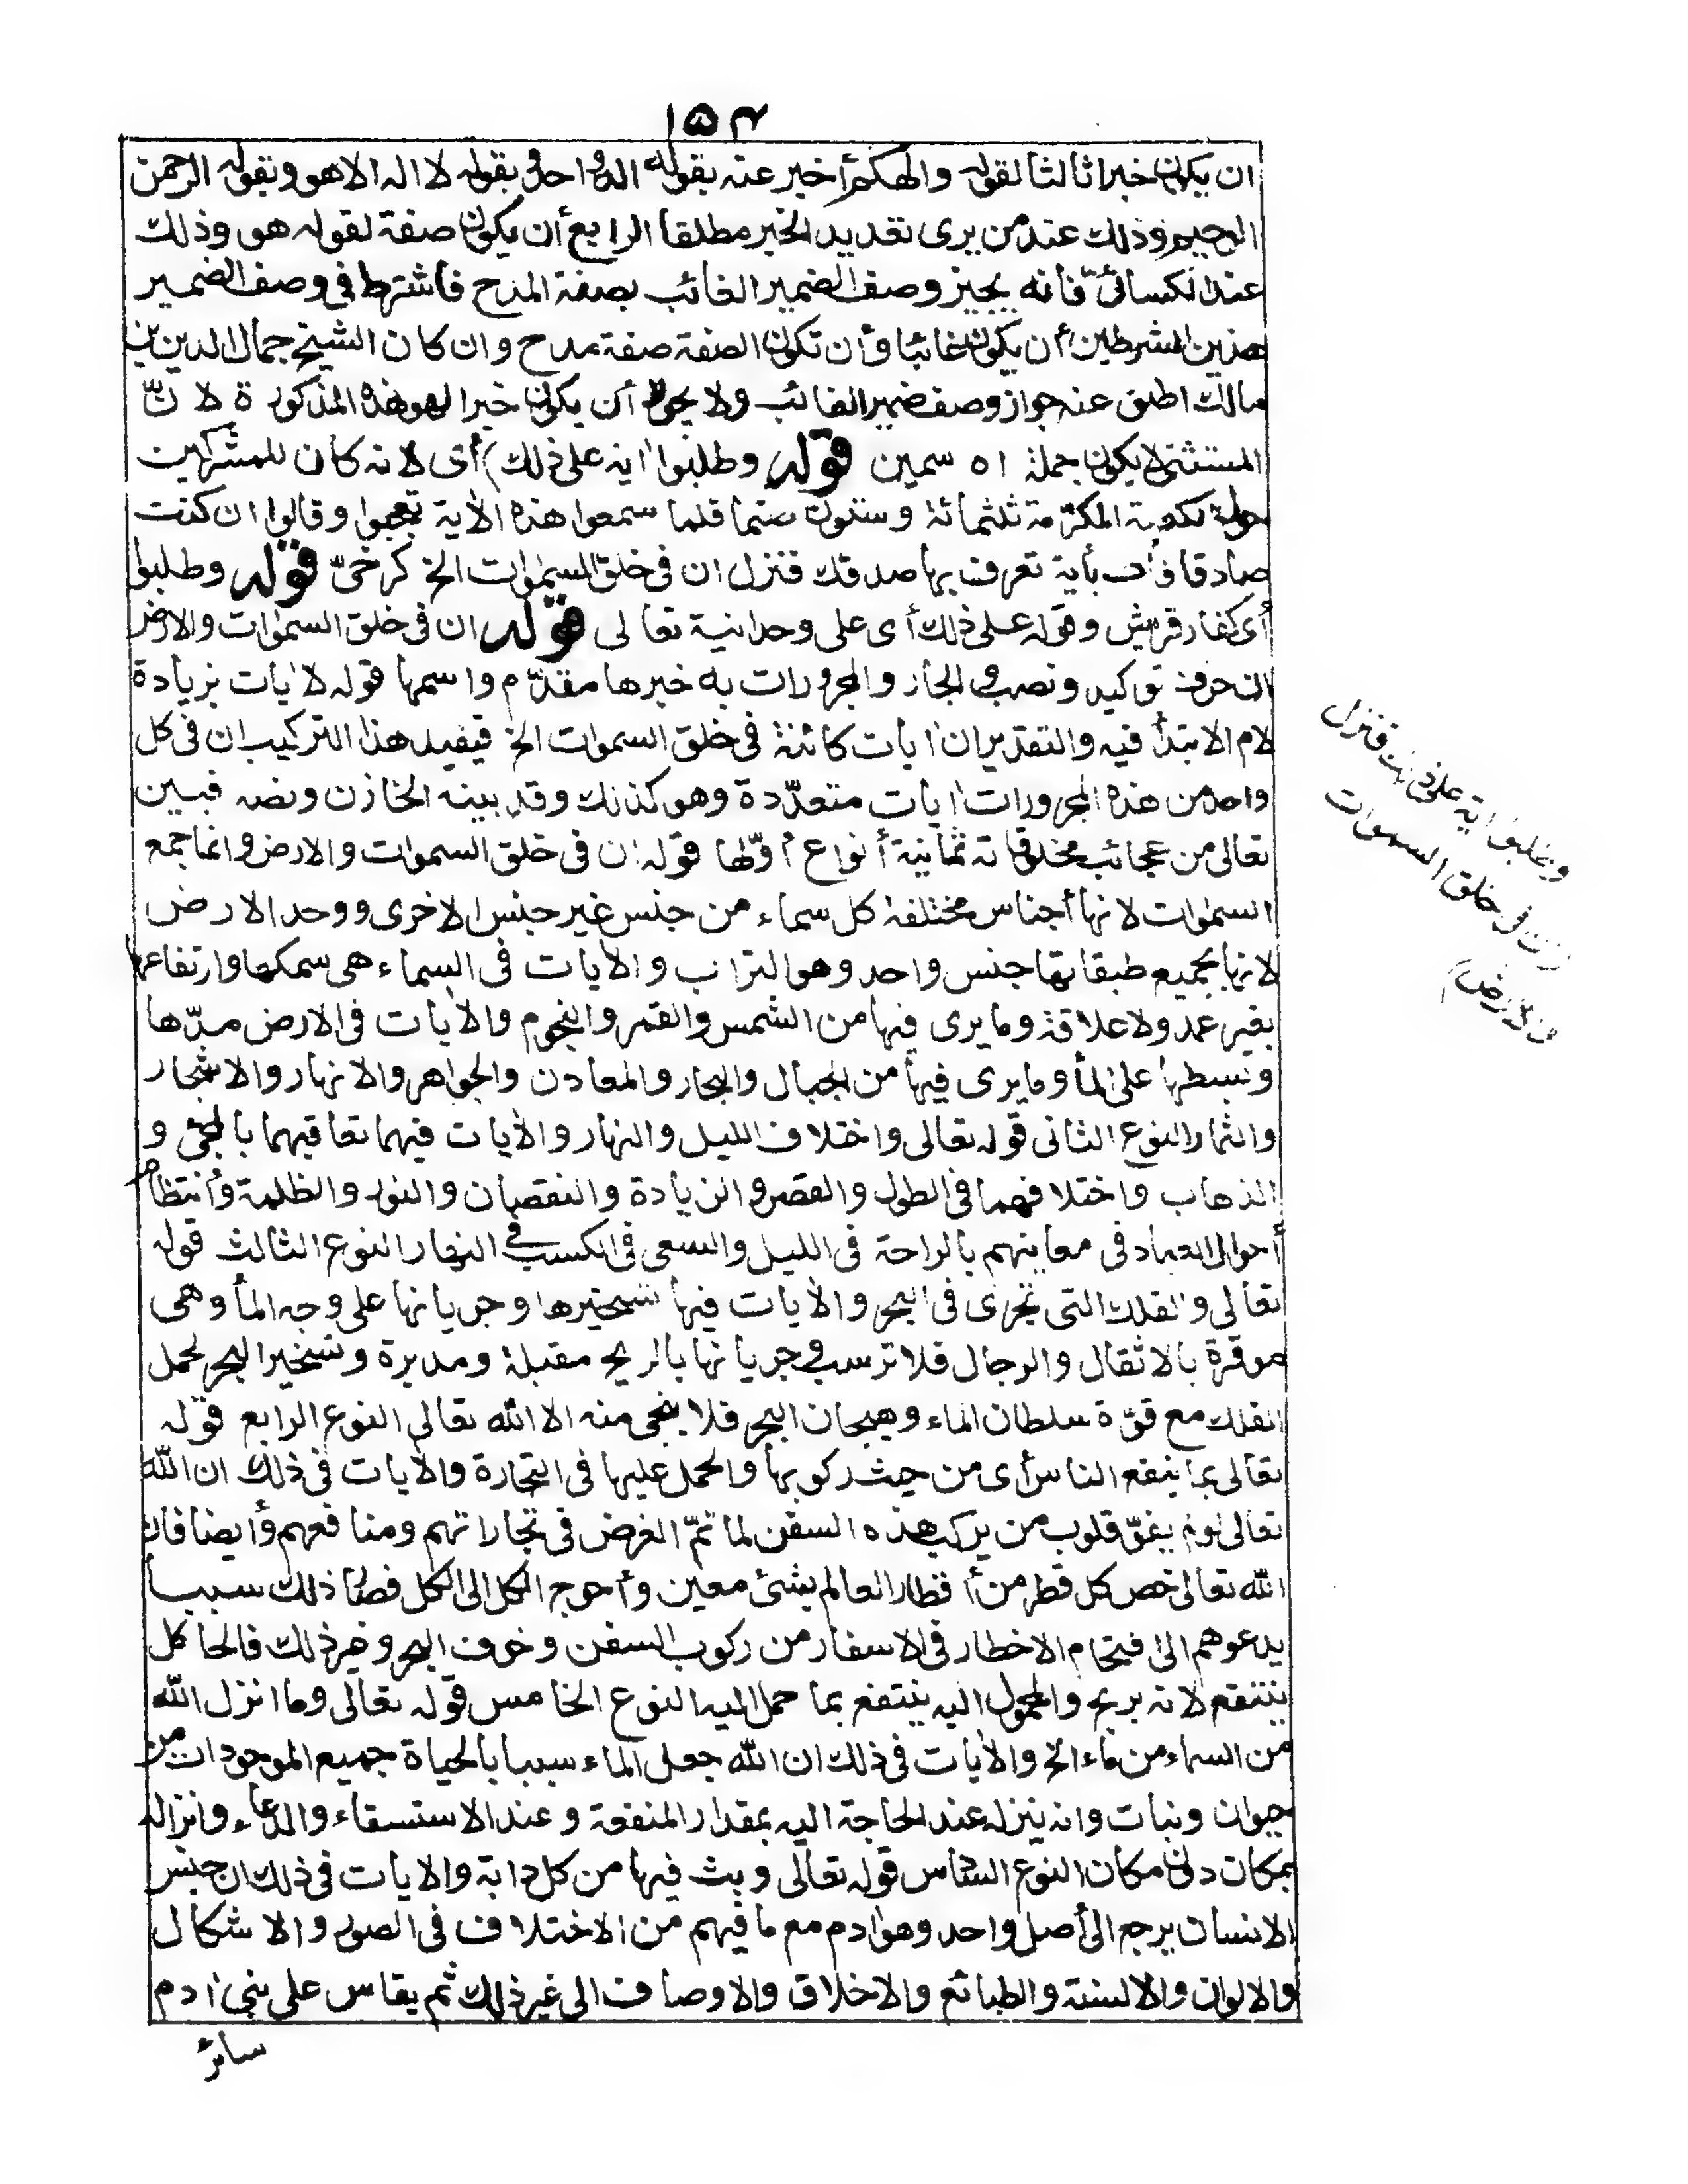 ١٥٤
ان يكون خبرا ثالثا لقوله والهكم أخبر عنه بقوله اله واحد وبقوله لا اله الا هو وبقوله الرحمن
الرحيم وذلك عند من يرى تعديد الخبر مطلقا الرابع أن يكون صفة لقوله هو وذلك
عند الكسائىّ فانه يجيز وصف الضمير الغائب بصفة المدح فاشترط فى وصف الضمير
هذين الشرطين أن يكون غائبا وأن تكون الصفة صفة مدح وان كان الشيخ جمال الدين بن
مالك اطلق عنه جواز وصف ضمير الغائب ولا يجوز أن يكون خبرا لهو هذه المذكورة لانّ
المستثنى لا يكون جملة اه سمين قوله وطلبوا اٰية على ذلك) أى لانه كان للمشركين
حول الكعبة المكرّمة ثلثمائة وستون صنما فلما سمعوا هذه الاٰية تعجبوا وقالوا ان كنت
صادقا فأت بأية نعرف بها صدقك فنزل ان فى خلق السمٰوات الخ كرخىّ قوله وطلبوا
أى كفار قريش وقوله على ذلك أى على وحدانية تعالى قوله ان فى خلق السمٰوات والارض
ان حرف توكيد ونصب والجار والمجرورات به خبرها مقدّم واسمها قوله لاٰيات بزيادة
لام الابتدأ فيه والتقدير ان اٰيات كائنة فى خلق السموات الخ فيفيد هذا التركيب ان فى كل
واحد من هذه المجرورات اٰيات متعدّدة وهو كذلك وقد بينه الخازن ونصه فبين
تعالى من عجائب مخلوقاته ثمانية أنواع أوّلها قوله ان فى خلق السموات والارض وانما جمع
السمٰوات لانها أجناس مختلفة كل سماء من جنس غير جنس الاخرى ووحد الارض
لانها بجميع طبقاتها جنس واحد وهو التراب والاٰيات فى السماء هى سمكها وارتفاعها
بغير عمد ولا علاقة وما يرى فيها من الشمس والقمر والنجوم والاٰيات فى الارض مدّها
وبسطها على المأ وما يرى فيها من الجبال والبحار والمعادن والجواهر والانهار والاشجار
والثمار النوع الثانى قوله تعالى واختلاف الليل والنهار والاٰيات فيهما تعاقبهما بالمجئ و
الذهاب واختلافهما فى الطول والقصر والزيادة والنقصان والنور والظلمة وأنتظام
أحوال العباد فى معاينهم بالراحة فى الليل والسعى فى الكسب فى النهار النوع الثالث قوله
تعالى والفلك التى تجرى فى البحر والاٰيات فيها تسخيرها وجريانها على وجه المأ وهى
موقرة بالاثقال والرجال فلا ترسب وجريانها بالريح مقبلة ومدبرة وتسخير البحر لحمل
الفلك مع قوّة سلطان الماء وهيجان البحر فلا ينجى منه الا الله تعالى النوع الرابع قوله
تعالى بما ينفع الناس أى من حيث ركوبها والحمل عليها فى التجارة والاٰيات فى ذلك ان الله
تعالى لو لم يقوّ قلوب من يركب هذه السفن لما تمّ الغرض فى تجاراتهم ومنافعهم وأيضا فان
الله تعالى خص كل قطر من أقطار العالم بشئ معين وأحوج الكل الى الكل فصار ذلك سببا
يدعوهم الى اقتحام الاخطار فى الاسفار من ركوب السفن وخوف البحر وغير ذلك فالحامل
ينتفع لانه يربح والمحمول اليه ينتفع بما حمل اليه النوع الخامس قوله تعالى وما انزل الله
من السماء من ماء الخ والاٰيات فى ذلك ان الله جعل الماء سببا بالحياة جميع الموجودات من
حيوان ونبات وانه ينزله عند الحاجة اليه بمقدار المنفعة وعند الاستسقاء والدعاء وانزاله
بمكان دون مكان النوع السادس قوله تعالى وبث فيها من كل دابة والاٰيات فى ذلك ان جنس
الانسان يرجع الى أصل واحد وهو اٰدم مع ما فيهم من الاختلاف فى الصور والاشكال
والالوان والالسنة والطبائع والاخلاق والاوصاف الى غير ذلك ثم يقاس على بنى اٰدم
سائر
وطلبوا اٰية على ذلك فنزل
ان فى خلق السموات
والارض)